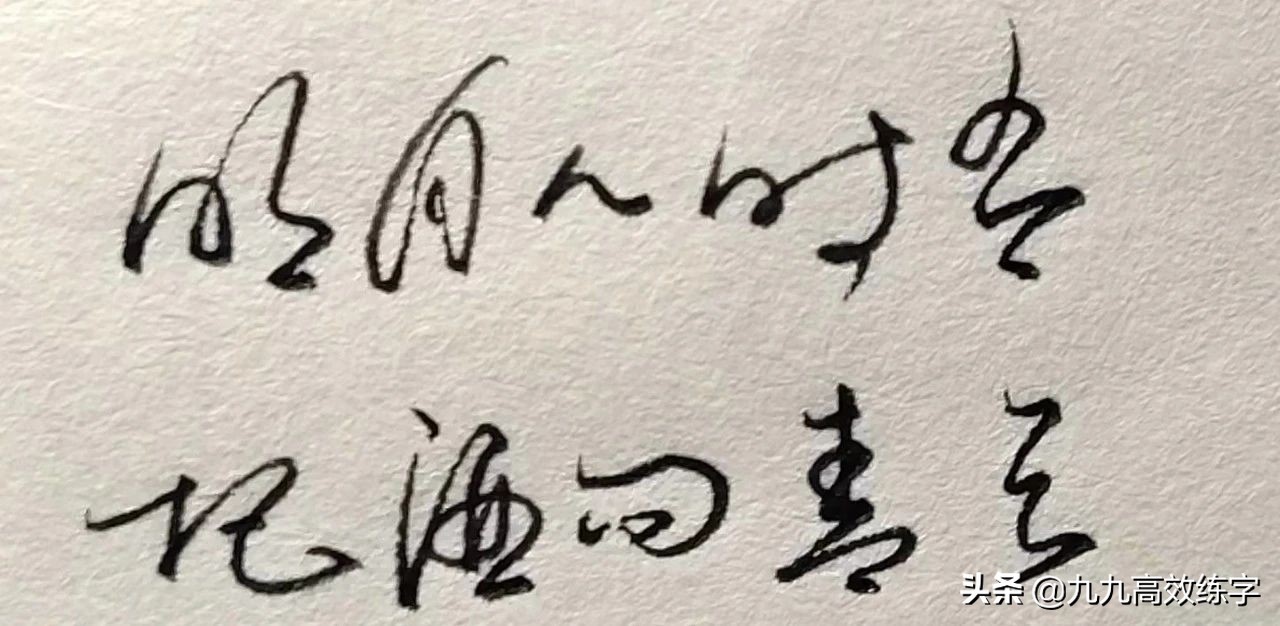 明月几时有
把酒问青天
头条 @九九高效练字